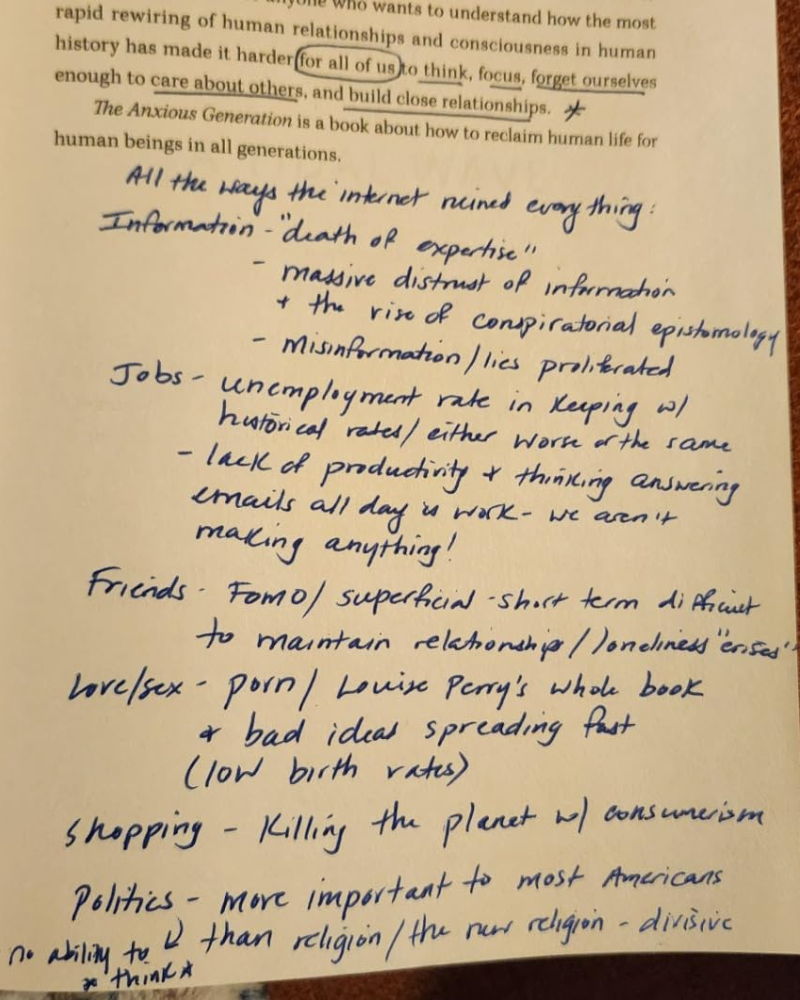 anyone who wants to understand how the most
rapid rewiring of human relationships and consciousness in human
history has made it harder for all of us to think, focus, forget ourselves
enough to care about others, and build close relationships. *
The Anxious Generation is a book about how to reclaim human life for
human beings in all generations.
All the ways the internet ruined everything:
Information - "death of expertise"
- massive distrust of information
+ the rise of conspiratorial epistomology
- Misinformation/lies proliferated
Jobs - unemployment rate in keeping w/
historical rates/either worse or the same
- lack of productivity + thinking answering
emails all day is work - we aren't
making anything!
Friends - FOMO/superficial - short term difficult
to maintain relationships/loneliness "crises"
Love/sex - porn/Louise Perry's whole book
+ bad ideas spreading fast
(low birth rates)
Shopping - Killing the planet w/ consumerism
Politics - more important to most Americans
than religion/the new religion - divisive
no ability to
* think *